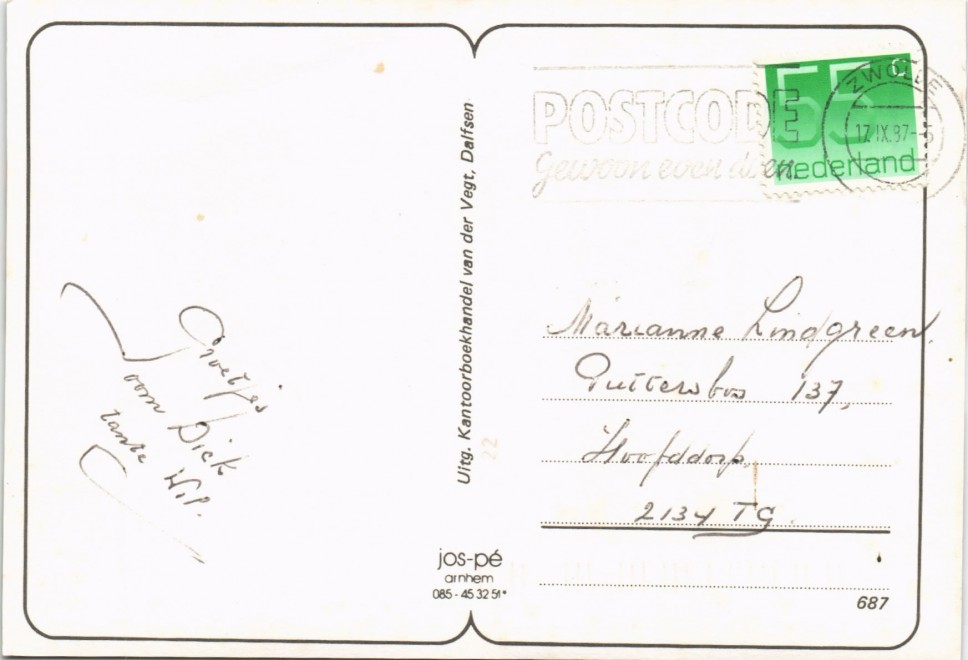 POSTCODE
Gewoon even doen.
55 c
nederland
ZWOLLE
17.IX.87-
Uitg. Kantoorboekhandel van der Vegt, Dalfsen
Groetjes
oom Dick
tante Wil.
Marianne Lindgreen,
Puttersbos 137,
Hoofddorp,
2134 TG.
22
jos-pé
arnhem
085 - 45 32 51*
687